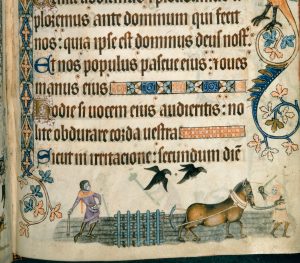 ploremus ante dominum qui fecit
nos: quia ipse est dominus deus nost̄
Et nos populus pascue eius: ⁊ oues
manus eius
Hodie si vocem eius audieritis: no
lite obdurare corda vestra
Sicut in irritacione: secundum diē